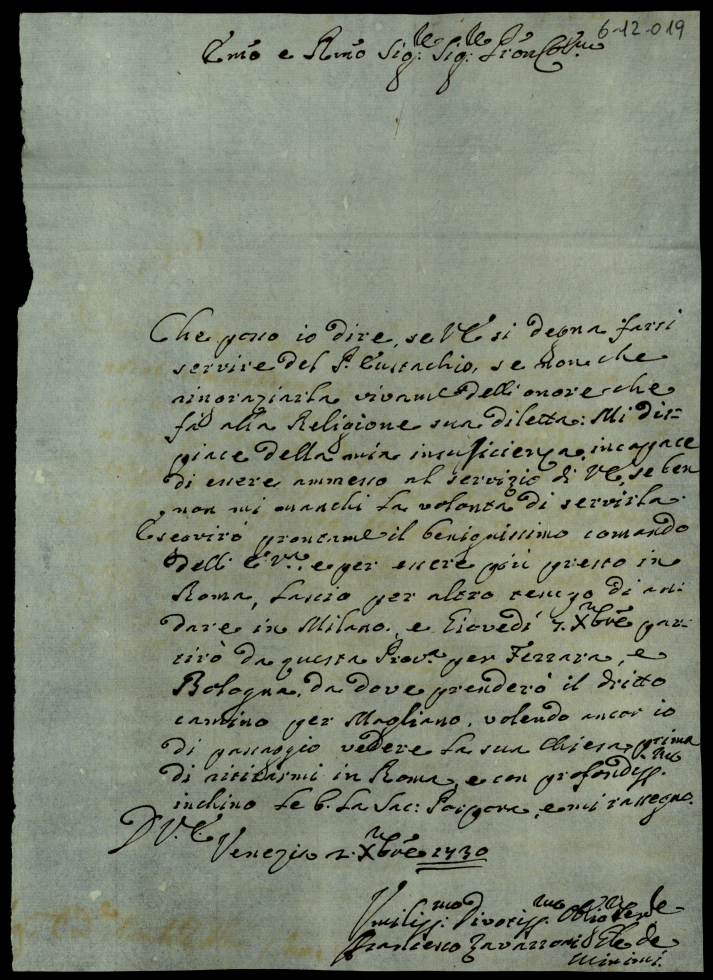 6-12-019
Emō e Rmō Sig:re Sig:re Pron Col:mo
Che posso io dire, se V.E. si degna farsi
servire del P. Eustachio, se non che
ringraziarla vivame dell'onore che
fà alla Religione sua diletta: Mi dis=
piace della mia insufficienza, incapace
di essere ammesso al servizio di V.E., se ben
non mi manchi la volontà di servirla.
Eseguirò prontame il benignissimo comando
dell'E.V.ra, e per essere più presto in
Roma, lascio per altro tempo di an:
dare in Milano, e Giovedi 7. Xbre par:
tirò da questa Prov.a per Ferrara, e
Bologna, da dove prenderò il dritto
camino per Magliano, volendo ancor io
di passaggio vedere la sua Chiesa, prima
di ritirarmi in Roma, e con profondiss:mo
inchino le b. la Sac: Porpora, e mi rassegno.
D V.E.
Venezia 2. Xbre 1730
Umiliss:mo Divotiss:mo Obl:mo Serv:re
Francesco Zavarroni Gñle de
Minimi.